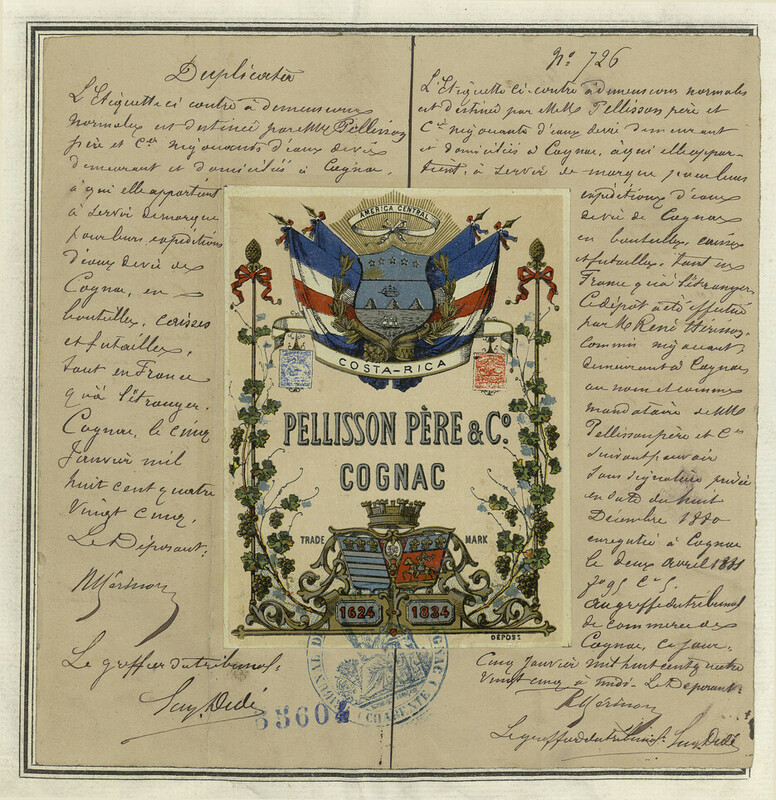 Duplicata
L'Etiquette ci contre à dimensions
normales est destinée par MM Pellisson
père et Cie négociants d'eaux de vie
demeurant et domiciliés à Cognac,
à qui elle appartient
à servir de marque
pour leurs expéditions
d'eaux de vie de
Cognac, en
bouteilles, caisses
et futailles,
tant en France
qu'à l'étranger.
Cognac, le cinq
Janvier mil
huit cent quatre
vingt cinq.
Le Déposant:
Le greffier du tribunal:
No 726
L'Etiquette ci-contre à dimensions normales
est destinée par MM. Pellisson père et
Cie négociants d'eaux de vie demeurant
et domiciliés à Cognac, à qui elle appar-
tient, à servir de marque pour leurs
expéditions d'eaux
de vie de Cognac
en bouteilles, caisses
et futailles, tant en
France qu'à l'étranger.
Ce dépôt a été effectué
par M. René
commis négociant
demeurant à Cognac
au nom et comme
mandataire de MM
Pellisson père et Cie
suivant pouvoir
sous signature privée
en date du huit
Décembre 1880
enregistré à Cognac
le deux avril 1881
au greffe du tribunal
de commerce de
Cognac, ce jour,
Cinq Janvier mil huit cent quatre
vingt cinq à midi. Le Déposant:
Le greffier du tribunal:
AMERICA CENTRAL
COSTA-RICA
PELLISSON PÈRE & Co.
COGNAC
TRADE MARK
1624 1834
DÉPOSÉ
TRIBUNAL DE COGNAC
(CHARENTE)